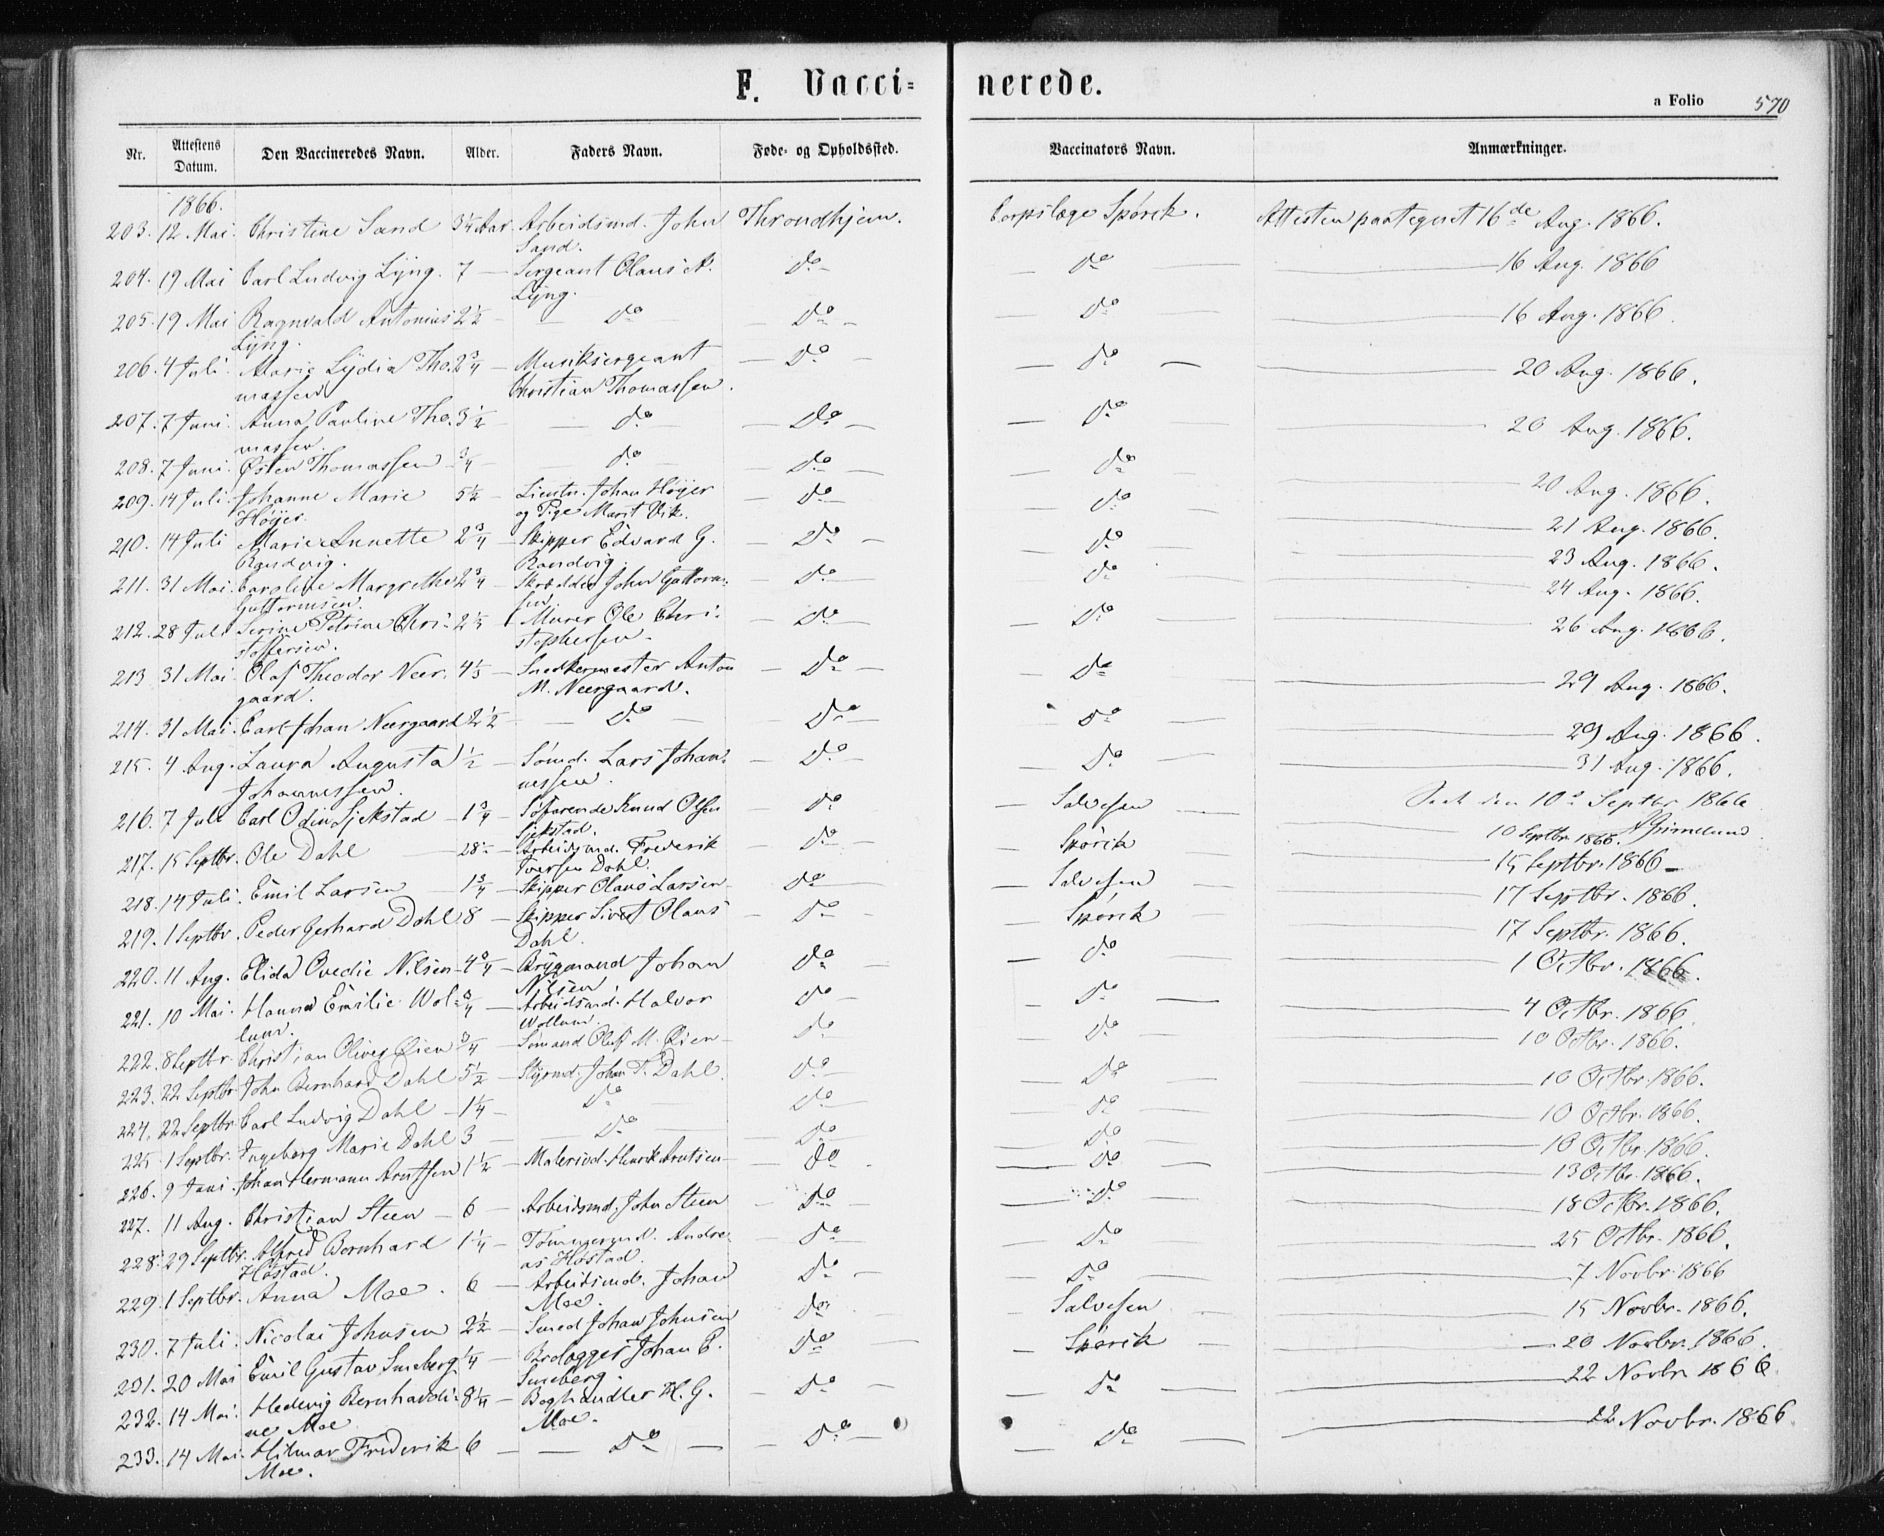 F. Vacci= nerede.
a Folio 570
Nr. Attestens Datum. Den Vaccineredes Navn. Alder. Faders Navn. Føde- og Opholdssted. Vaccinators Navn. Anmærkninger.
1866.
203. 12 Mai. Christine Sand 3¼ Aar. Arbeidsmd. John Throndhjem. Corpslæge Spørck. Attesten paategnet 16de Aug. 1866.
Sand.
204. 19 Mai Carl Ludvig Lyng. 7 — Sergeant Olaus A. Do — — Do — 16 Aug. 1866
Lyng.
205. 19 Mai Ragnvald Antonius 2½ — Do — Do — — Do — 16 Aug. 1866.
Lyng.
206. 4 Juli. Marie Lydia Tho- 2¾ — Musiksergeant — Do — — Do — 20 Aug. 1866.
massen Christian Thomassen.
207. 7 Juni. Anna Pauline Tho. 3½ — Do — — Do — — Do — 20 Aug. 1866.
massen.
208. 7 Juni. Østen Thomassen — ¾ — Do — — Do — — Do — 20 Aug. 1866.
209. 14 Juli. Johanne Marie 5½ — Lieutn. Johan Høyer — Do — — Do — 21 Aug. 1866.
Høyer. og Pige Marit Vik.
210. 14 Juli Marie Annette 2¾ — Skipper Edvard G. — Do — — Do — 23 Aug. 1866.
Randvig. Randvig.
211. 31 Mai. Caroline Margrethe 2¾ — Skrædder John Guttorm- — Do — — Do — 24 Aug. 1866.
Guttormsen. sen.
212. 28 Juli Serine Petrine Chri- Murer Ole Chri- — Do — — Do — 26 Aug. 1866.
stoffersen. stophersen.
213 31 Mai. Olaf Theodor Neer- Snedkermester Anton — Do — — Do — 29 Aug. 1866.
gaard. M. Neergaard.
214. 31 Mai. Carl Johan Neergaard 2½ — Do — — Do — — Do — 29 Aug. 1866.
215. 4 Aug. Laura Augusta ½ — Sømd. Lars Johan- — Do — — Do — 31 Aug. 1866.
Johannessen. nessen.
216. 7 Juli Carl Odin Sjekstad — 1¾ — Søfarende Knud Olsen — Do — Salvesen — den 10de Septbr. 1866
Sjekstad. AGrimelund
217. 15 Septbr. Ole Dahl 28 — Arbeidsmd. Frederik — Do — — Spørck 10 Septbr. 1866.
Iversen Dahl. 15 Septbr. 1866 —
218. 14 Juli. Emil Larsen — 1¾ — Skipper Olaus Larsen — Do — — Salvesen — 17 Septbr. 1866.
219. 1 Septbr. Peder Gerhard Dahl 8 — Skipper Sivert Olaus — Do — — Spørck — 17 Septbr. 1866.
Dahl.
220. 11 Aug. Elida Ovedie Nilsen — 4¾ — Brygmand Johan Do — — Do — 1 Octbr. 1866.
Nilsen
221. 10 Mai. Hanna Emilie Wol- ¾ — Arbeidsmd. Halvor Do — — Do — 4 Octbr. 1866.
lum. Wollum.
222. 8 Septbr. Christian Oliver Øien ¾ — Sømand Oluf M. Øien — Do — Do — 10 Octbr. 1866.
223. 22 Septbr John Bernhard Dahl 5½ — Styrmd. Johan P. Dahl. Do — — Do — 10 Octbr. 1866.
224. 22 Septbr. Carl Ludvig Dahl — 1¼ — Do — Do — — Do — 10 Octbr. 1866.
225 1 Septbr. Ingeborg Marie Dahl 3 — Do — — Do — — Do — 10 Octbr. 1866.
226. 9 Juni. Johan Hermann Arntsen 1½ — Malersvd. Henrik Arntsen — Do — — Do — 13 Octbr. 1866.
227. 11 Aug. Christian Steen — 6 — Arbeidsmd. John Steen — Do — — Do — 18 Octbr. 1866.
228. 29 Septbr. Alfred Bernhard 1¼ — Tømmermd. Andre- — Do — — Do — 25 Octbr. 1866.
Høstad. as Høstad.
229. 1 Septbr. Anna Moe. 6 — Arbeidsmd. Johan Do — — Do — 7 Novbr. 1866
Moe.
230. 7 Juli. Nicolai Johnsen 2½ — Smed Johan Johnsen Do — Salvesen — 15 Novbr. 1866.
231. 20 Mai Emil Gustav Smeberg. ¼ — Johan C. Do — — Spørck — 20 Novbr. 1866.
Smeberg.
232. 14 Mai. Hedevig Bernhardi- 8¼ — Boghandler H. G. — Do — — Do — 22 Novbr 1866.
ne Moe Moe.
233. 14 Mai. Hilmar Frederik 6 — — Do — — Do — — Do — 22 Novbr. 1866.
Moe.